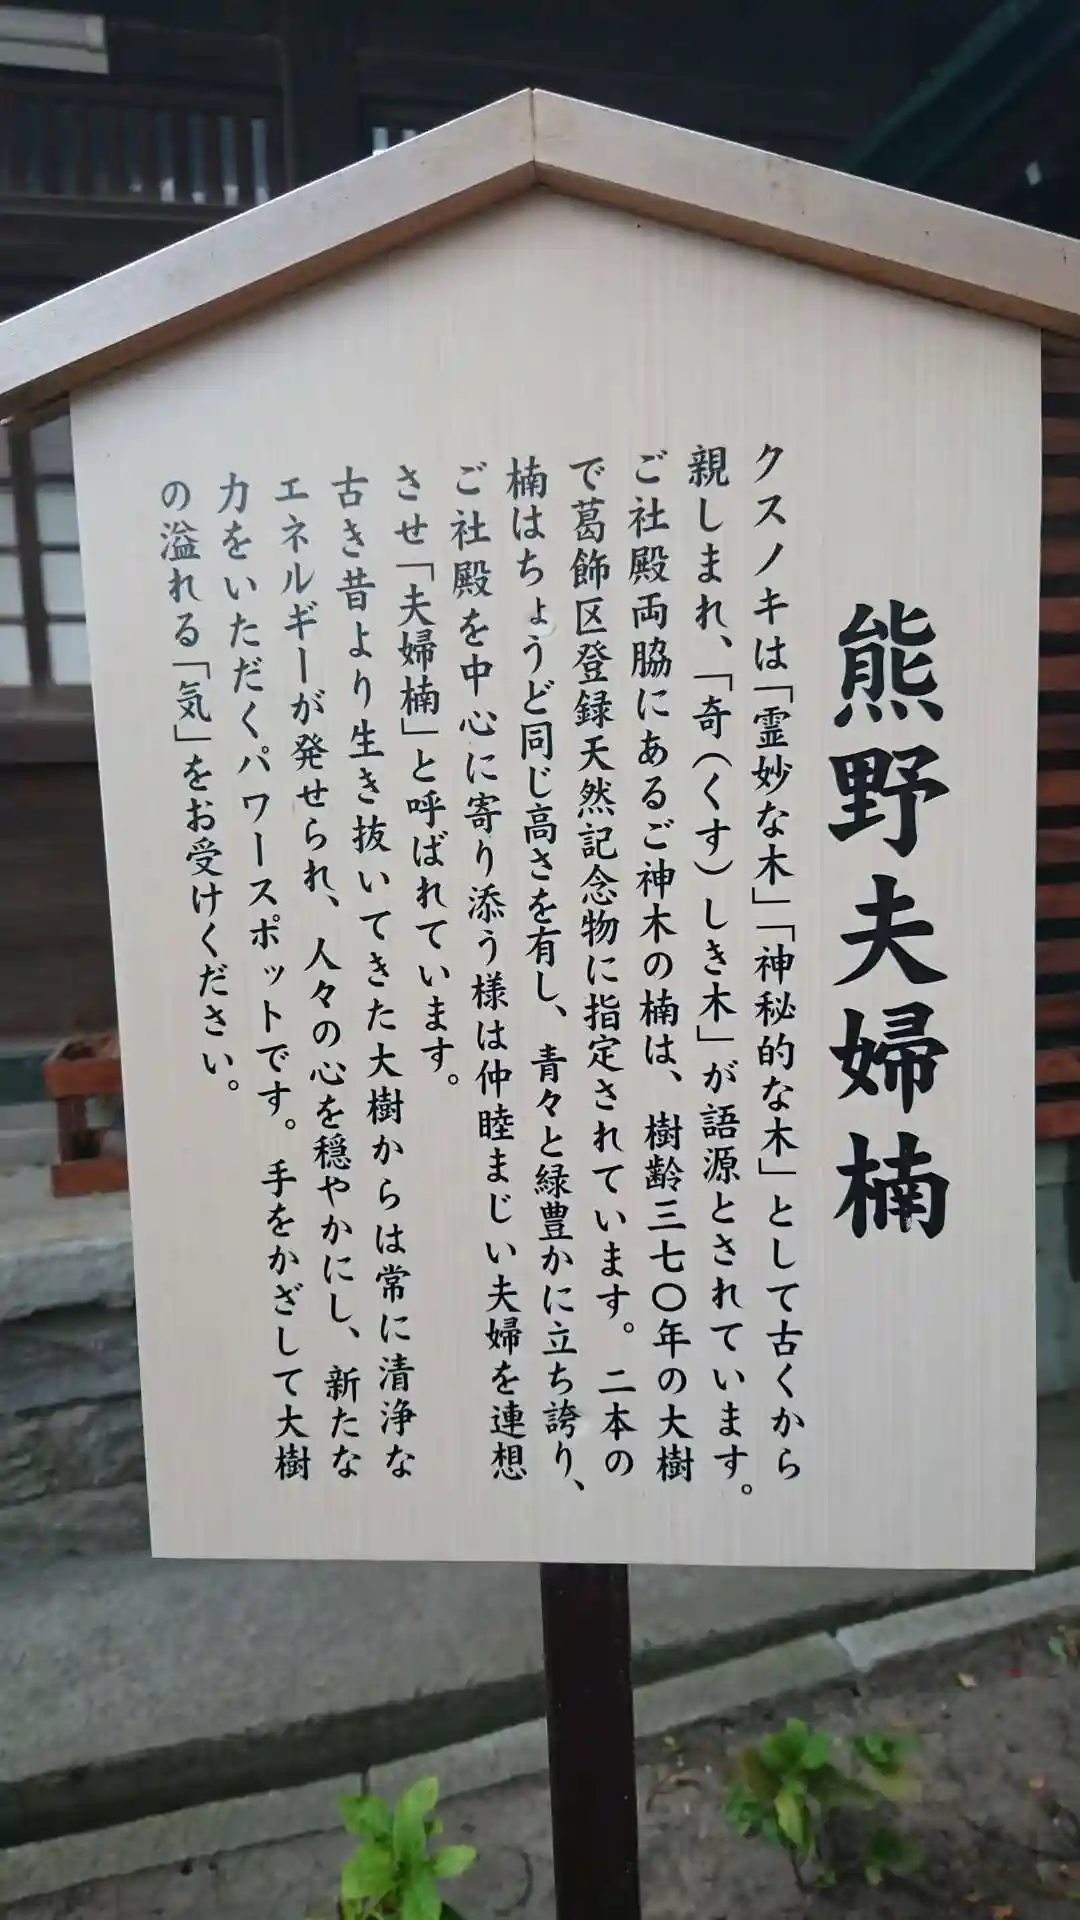 熊野夫婦楠
クスノキは「霊妙な木」「神秘的な木」として古くから
親しまれ、「奇(くす)しき木」が語源とされています。
ご社殿両脇にあるご神木の楠は、樹齢三七〇年の大樹
で葛飾区登録天然記念物に指定されています。二本の
楠はちょうど同じ高さを有し、青々と緑豊かに立ち誇り、
ご社殿を中心に寄り添う様は仲睦まじい夫婦を連想
させ「夫婦楠」と呼ばれています。
古き昔より生き抜いてきた大樹からは常に清浄な
エネルギーが発せられ、人々の心を穏やかにし、新たな
力をいただくパワースポットです。手をかざして大樹
の溢れる「気」をお受けください。